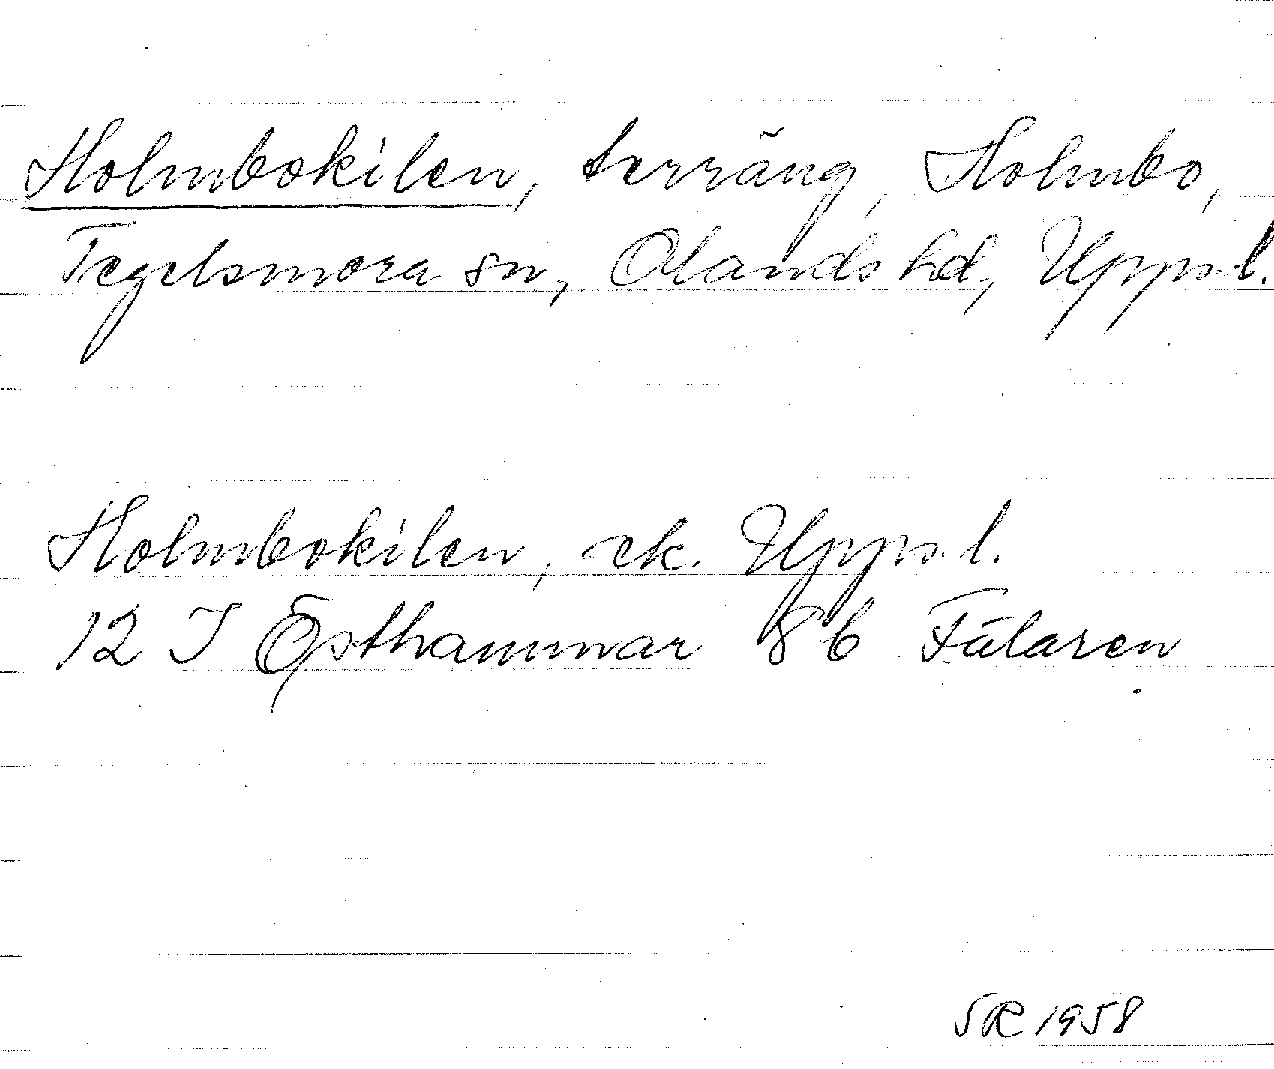 Holmbokilen, terräng, Holmbo,
Tegelsmora sn, Olands hd, Uppsl.
Holmbokilen, ek. Uppsl.
12 I Östhammar 8b Fälaren
SR 1958